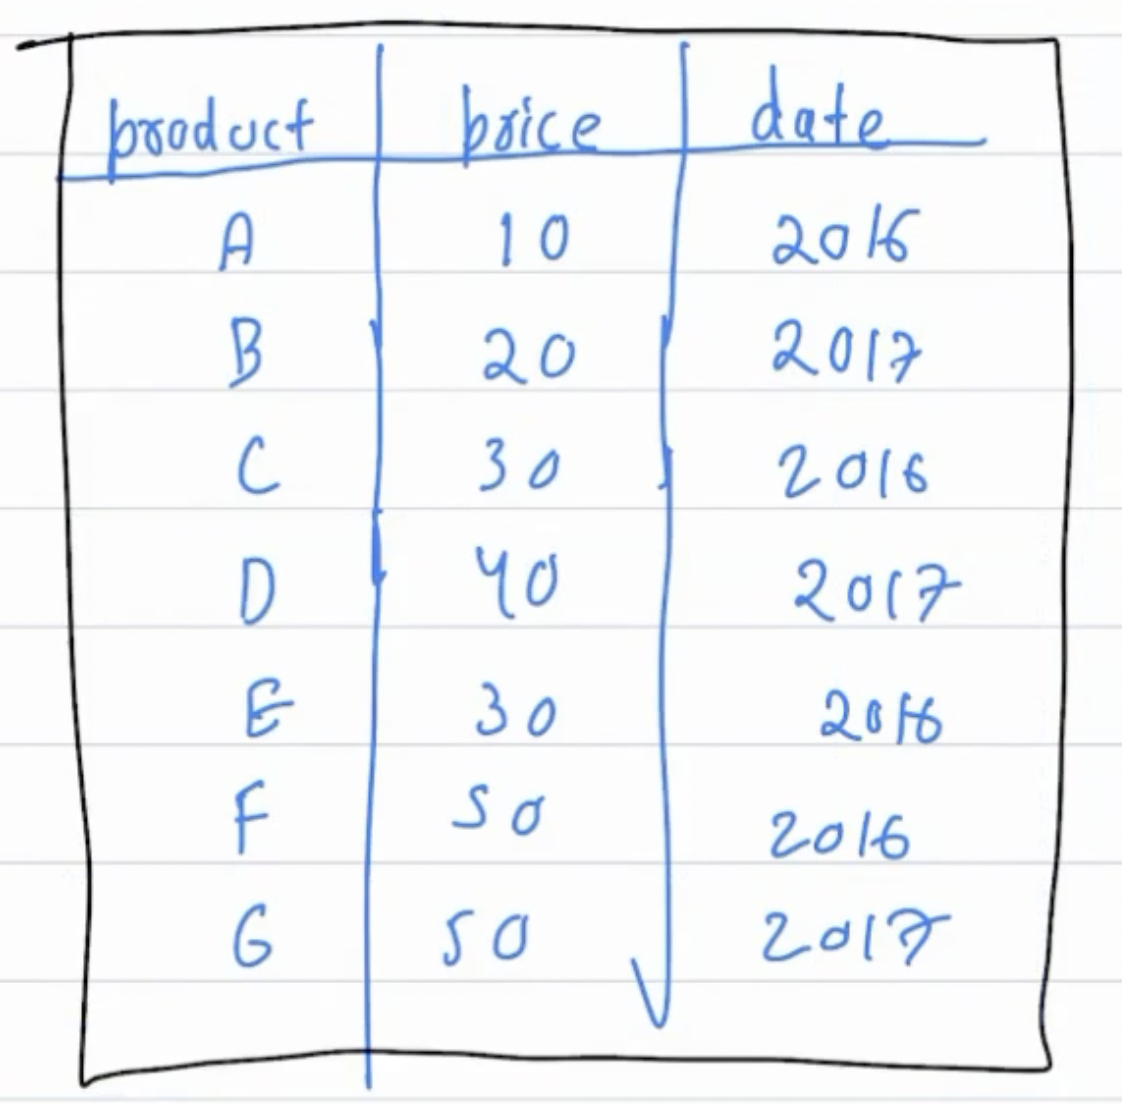 product price date
A 10 2016
B 20 2017
C 30 2016
D 40 2017
E 30 2016
F 50 2016
G 50 2017